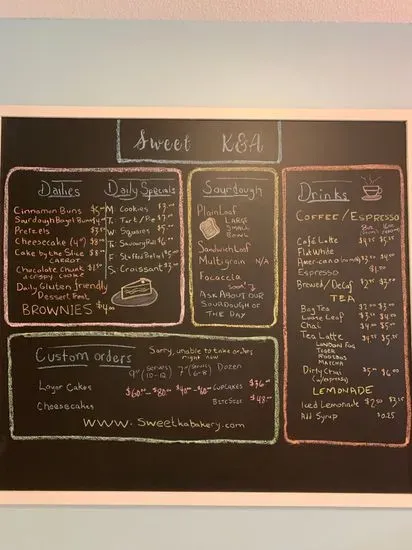 Sweet K&A
Dailies
Cinnamon Buns $5.00
Sourdough Bagel Buns $4.00
Pretzels $3.50
Cheesecake (4") $8.00
Cake by the Slice $8.00
CARROT
Chocolate Chunk
crispy cookie
Daily Gluten friendly
Dessert Feat
BROWNIES $4.00
Daily Specials
M. Cookies $3.00
T. Tart/Pie $7.00
W. Squares $5.00
T. Savoury $6.00
F. $5.00
S. Croissant $3.00
Sourdough
Plain Loaf
LARGE
SMALL
BOWL
Sandwich Loaf
Multigrain N/A
Focaccia
SOON!
ASK ABOUT OUR
SOURDOUGH OF
THE DAY
Drinks
COFFEE/ESPRESSO
Café Latte $4.25 $5.25
Flat White
Americano $3.00 $4.00
Espresso $1.50
Brewed/Decaf
TEA
Bag Tea $2.00 $3.00
Loose Leaf $3.00 $4.00
Chai $4.00 $5.00
Tea Latte
LONDON FOG
TIGER
ROOIBOS
MATCHA
Dirty Chai $5.00 $6.00
(w/espresso)
LEMONADE
Iced Lemonade $2.50 $3.25
Add Syrup $0.25
Custom orders
Sorry, unable to take orders
right now
9" (Serves 10-12) 7" (Serves 6-8) Dozen
Layer Cakes $60.00-$80.00 $40.00-$60.00 CUPCAKES $36.00
Cheesecakes BITE SIZE $48.00
www.sweetkabakery.com